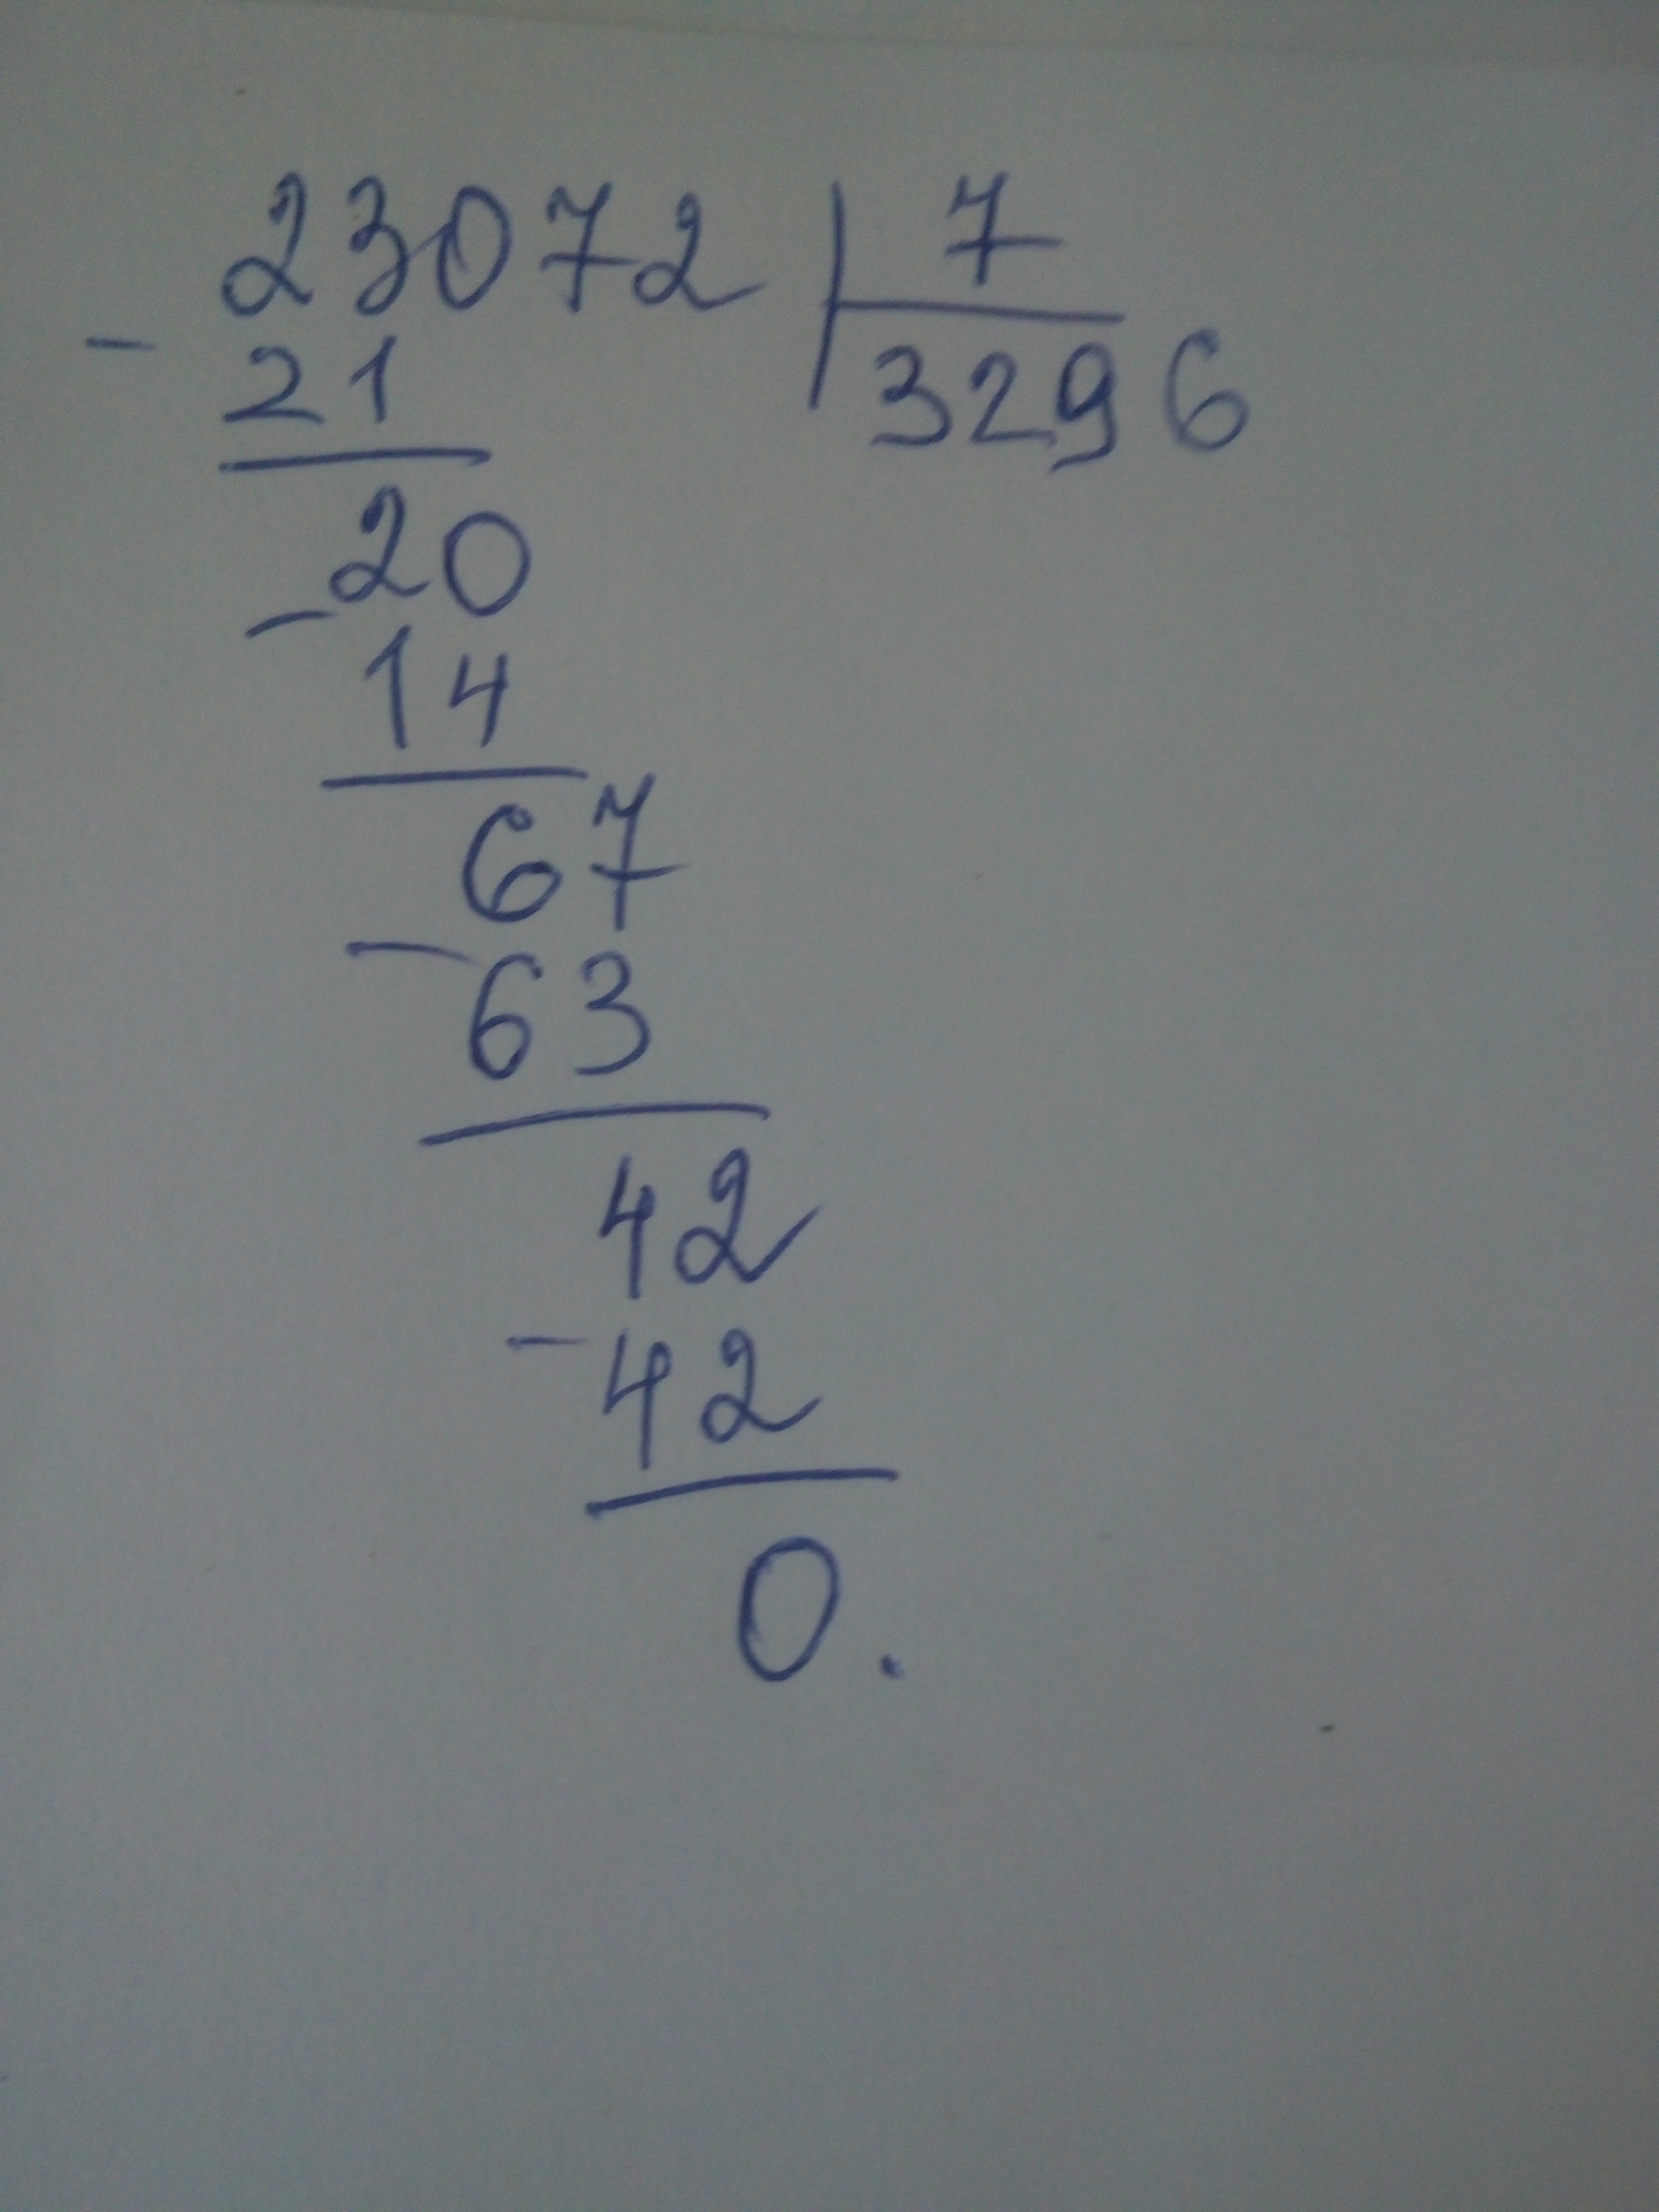 23072 7
- 21 3296
20
- 14
67
- 63
42
- 42
0.